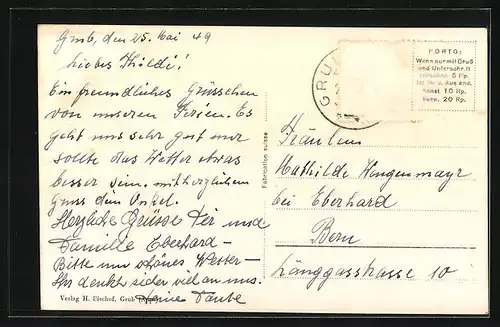 Grub, den 25. Mai 49
Liebes Thildi!
Ein freundliches Grüsschen
von unseren Ferien. Es
geht uns sehr gut nur
sollte das Wetter etwas
besser sein. mit herzlichem
Gruss dein Onkel.
Herzliche Grüsse Dir und
Familie Eberhard –
Bitte um schönes Wetter –
Ihr denket sicher viel an uns.
Deine Tante
Verlag H. Bischof, Grub
Fabrication suisse
GRU
PORTO:
Wenn nur mit Gruß
und Unterschrift
5 Rp.
sonst 10 Rp.
20 Rp.
Fräulein
Mathilde Wengenmayr
bei Eberhard
Bern
Länggasstrasse 10